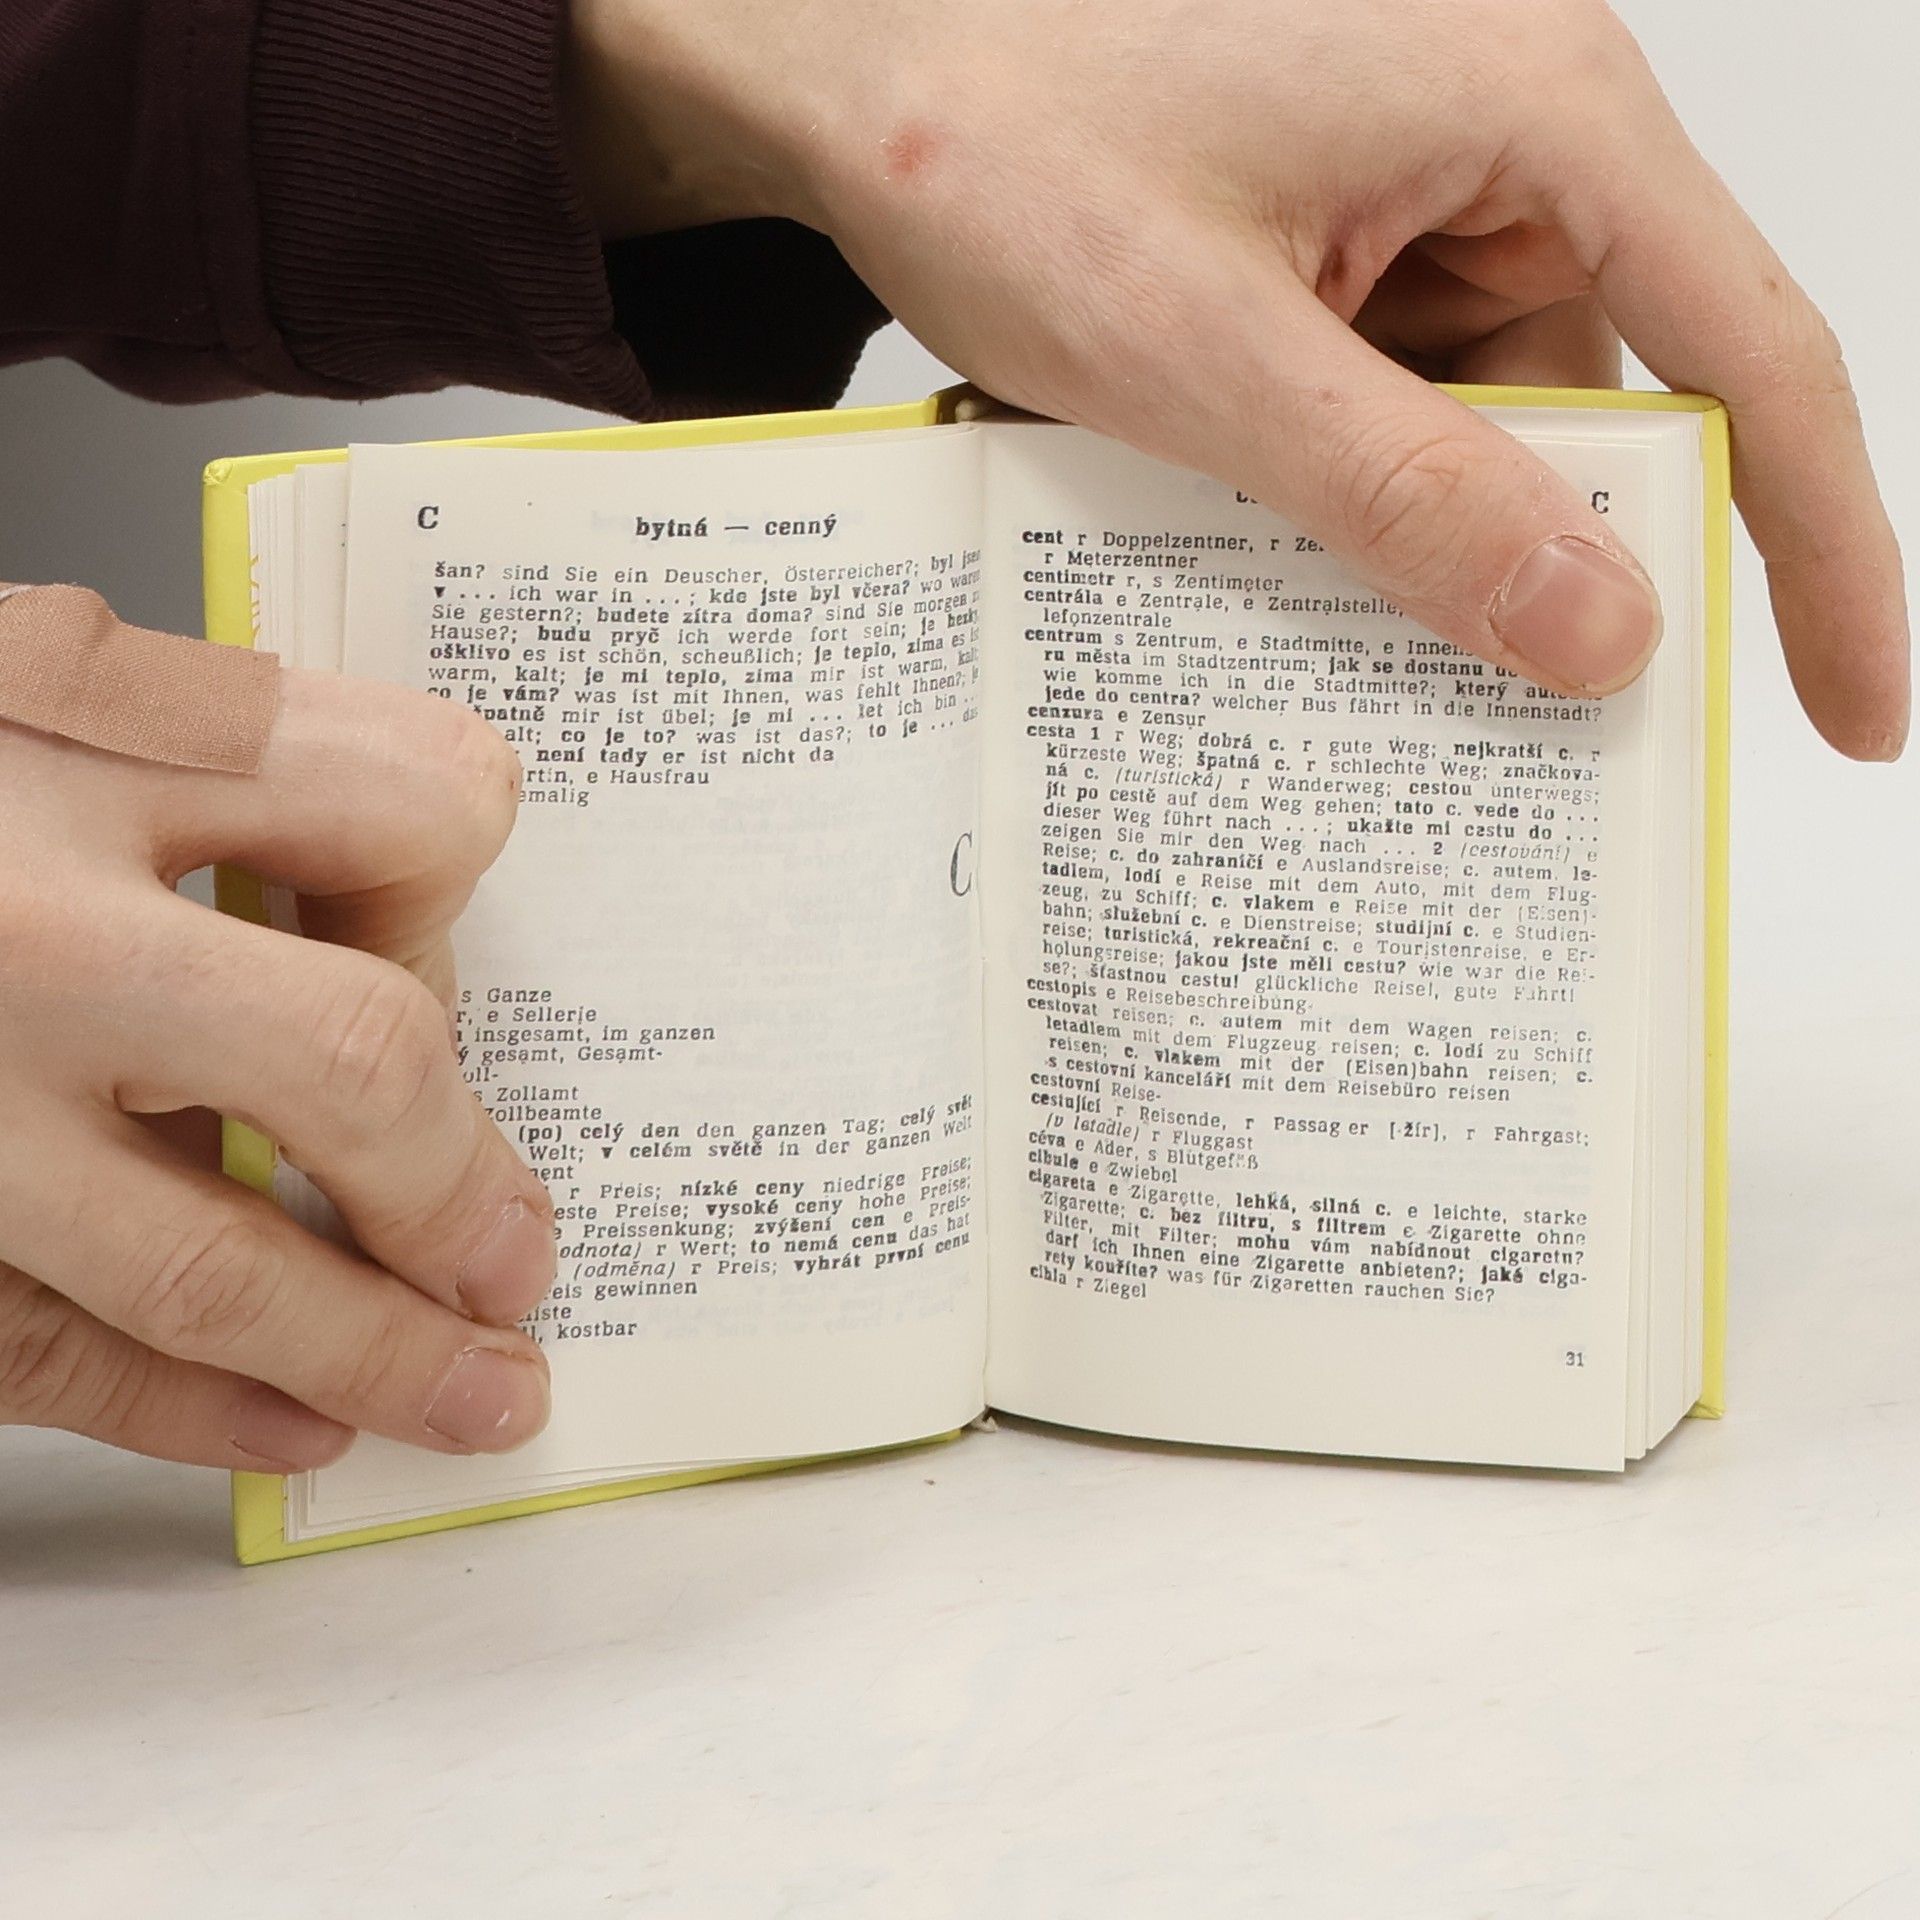 C
bytná — cenný
šan? sind Sie ein Deuscher, Österreicher?; byl jsem
v ... ich war in ...; kde jste byl včera? wo waren
Sie gestern?; budete zítra doma? sind Sie morgen
Hause?; budu pryč ich werde fort sein; je hezky
ošklivo es ist schön, scheußlich; je teplo, zima es ist
warm, kalt; je mi teplo, zima mir ist warm, kalt;
co je vám? was ist mit Ihnen, was fehlt Ihnen?; je
špatně mir ist übel; je mi ... let ich bin ...
alt; co je to? was ist das?; to je ... das
není tady er ist nicht da
e Hausfrau
C
s Ganze
e Sellerie
insgesamt, im ganzen
gesamt, Gesamt-
s Zollamt
Zollbeamte
(po) celý den den ganzen Tag; celý svět
Welt; v celém světě in der ganzen Welt
r Preis; nízké ceny niedrige Preise;
Preise; vysoké ceny hohe Preise;
Preissenkung; zvýšení cen e Preis-
r Wert; to nemá cenu das hat
(odměna) r Preis; vyhrát první cenu
gewinnen
kostbar
C
cent r Doppelzentner, r
r Meterzentner
centimetr r, s Zentimeter
centrála e Zentrale, e Zentralstelle,
lefonzentrale
centrum s Zentrum, e Stadtmitte, e
ru města im Stadtzentrum; jak se dostanu
wie komme ich in die Stadtmitte?; který
jede do centra? welcher Bus fährt in die Innenstadt?
cenzura e Zensur
cesta 1 r Weg; dobrá c. r gute Weg; nejkratší c. r
kürzeste Weg; špatná c. r schlechte Weg; značkova-
ná c. (turistická) r Wanderweg; cestou unterwegs;
jít po cestě auf dem Weg gehen; tato c. vede do ...
dieser Weg führt nach ...; ukažte mi cestu do ...
zeigen Sie mir den Weg nach ... 2 (cestování) e
Reise; c. do zahraničí e Auslandsreise; c. autem, le-
tadlem, lodí e Reise mit dem Auto, mit dem Flug-
zeug, zu Schiff; c. vlakem e Reise mit der (Eisen)-
bahn; služební c. e Dienstreise; studijní c. e Studien-
reise; turistická, rekreační c. e Touristenreise, e Er-
holungsreise; jakou jste měli cestu? wie war die Rei-
se?; šťastnou cestu! glückliche Reise!, gute Fahrt!
cestopis e Reisebeschreibung
cestovat reisen; c. autem mit dem Wagen reisen; c.
letadlem mit dem Flugzeug reisen; c. lodí zu Schiff
reisen; c. vlakem mit der (Eisen)bahn reisen; c.
s cestovní kanceláří mit dem Reisebüro reisen
cestovní Reise-
cestující r Reisende, r Passager [-žír], r Fahrgast;
(v letadle) r Fluggast
céva e Ader, s Blutgefäß
cibule e Zwiebel
cigareta e Zigarette, lehká, silná c. e leichte, starke
Zigarette; c. bez filtru, s filtrem e Zigarette ohne
Filter, mit Filter; mohu vám nabídnout cigaretu?
darf ich Ihnen eine Zigarette anbieten?; jaké ciga-
rety kouříte? was für Zigaretten rauchen Sie?
cihla r Ziegel
31